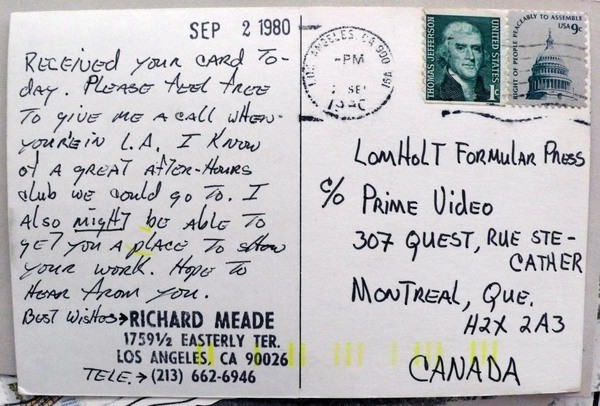 SEP 2 1980
RECEIVED YOUR CARD TO-
DAY. PLEASE FEEL FREE
TO GIVE ME A CALL WHEN
YOU'RE IN L.A. I KNOW
OF A GREAT AFTER-HOURS
club WE COULD GO TO. I
Also might bE AblE TO
GET YOU A plACE TO SHOW
YOUR WORK. HOPE TO
HEAR FROM YOU.
BEST WISHES→RICHARD MEADE
1759½ EASTERLY TER.
LOS ANGELES, CA 90026
TELE.→(213) 662-6946
LOS ANGELES, CA 900
PM
SEP
THOMAS JEFFERSON
UNITED STATES
1c
RIGHT OF PEOPLE PEACEABLY TO ASSEMBLE
USA 9c
LOMHOLT FORMULAR PRESS
c/o PRIME VIDEO
307 QUEST, RUE STE-
CATHER
MONTREAL, QUE.
H2X 2A3
CANADA